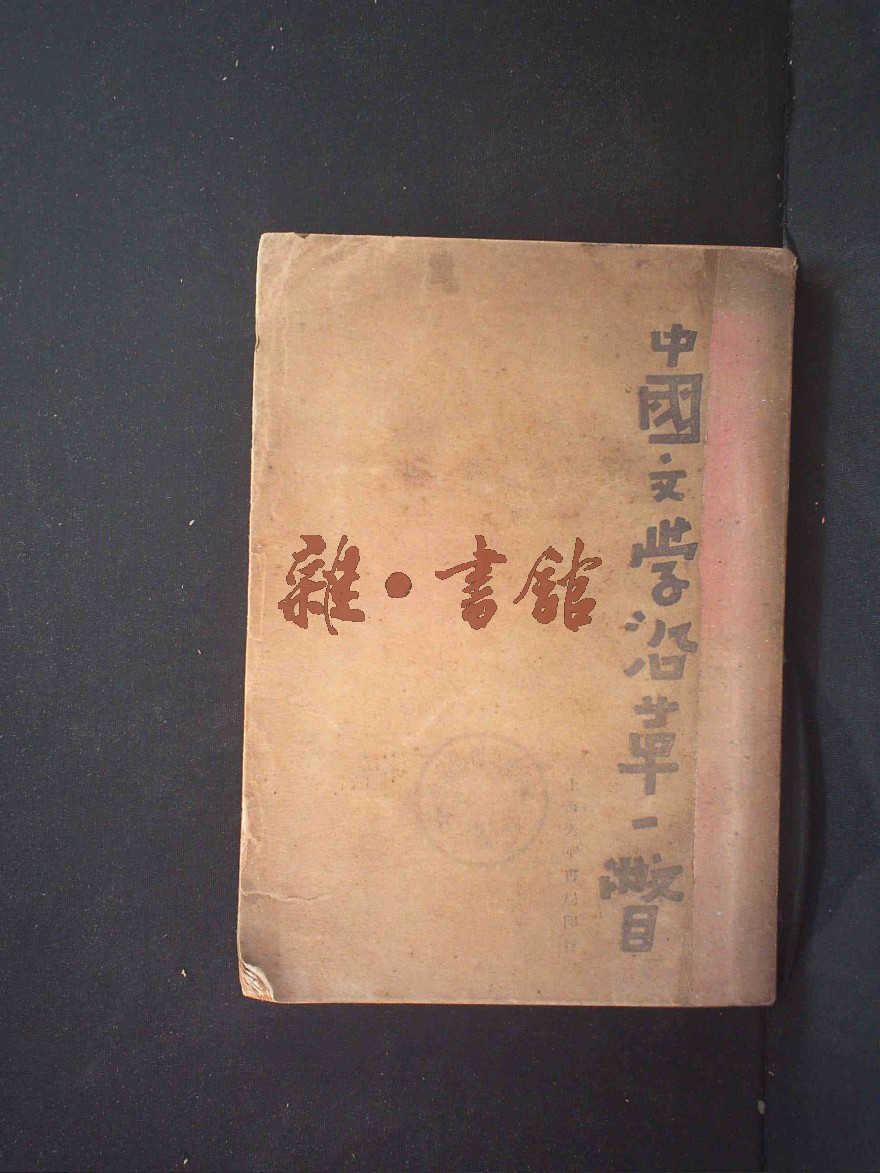 中國文學沿革一瞥
上海光華書局印行
雜·書館